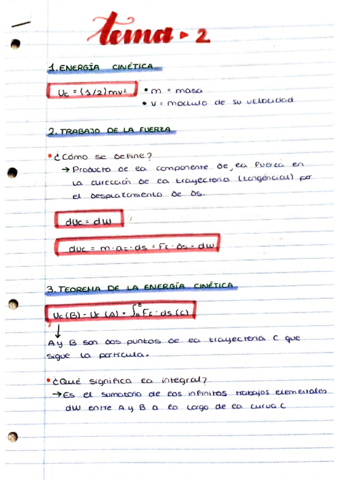 tema - 2
1. ENERGÍA CINÉTICA
Uc = (1/2) mv²
• m = masa
• v = modulo de su velocidad
2. TRABAJO DE LA FUERZA
• ¿Cómo se define?
→ Producto de la componente de la fuerza en
la dirección de la trayectoria (tangencial) por
el desplazamiento de ds.
dUc = dW
dUc = m · at · ds = Ft · ds = dW
3. TEOREMA DE LA ENERGÍA CINÉTICA
Uc (B) - Uc (A) = ∫ᴬᴮ Ft · ds (C)
↓
A y B son dos puntos de la trayectoria C que
sigue la partícula.
• ¿Qué significa la integral?
→ Es el sumatorio de los infinitos trabajos elementales
dW entre A y B a lo largo de la curva C